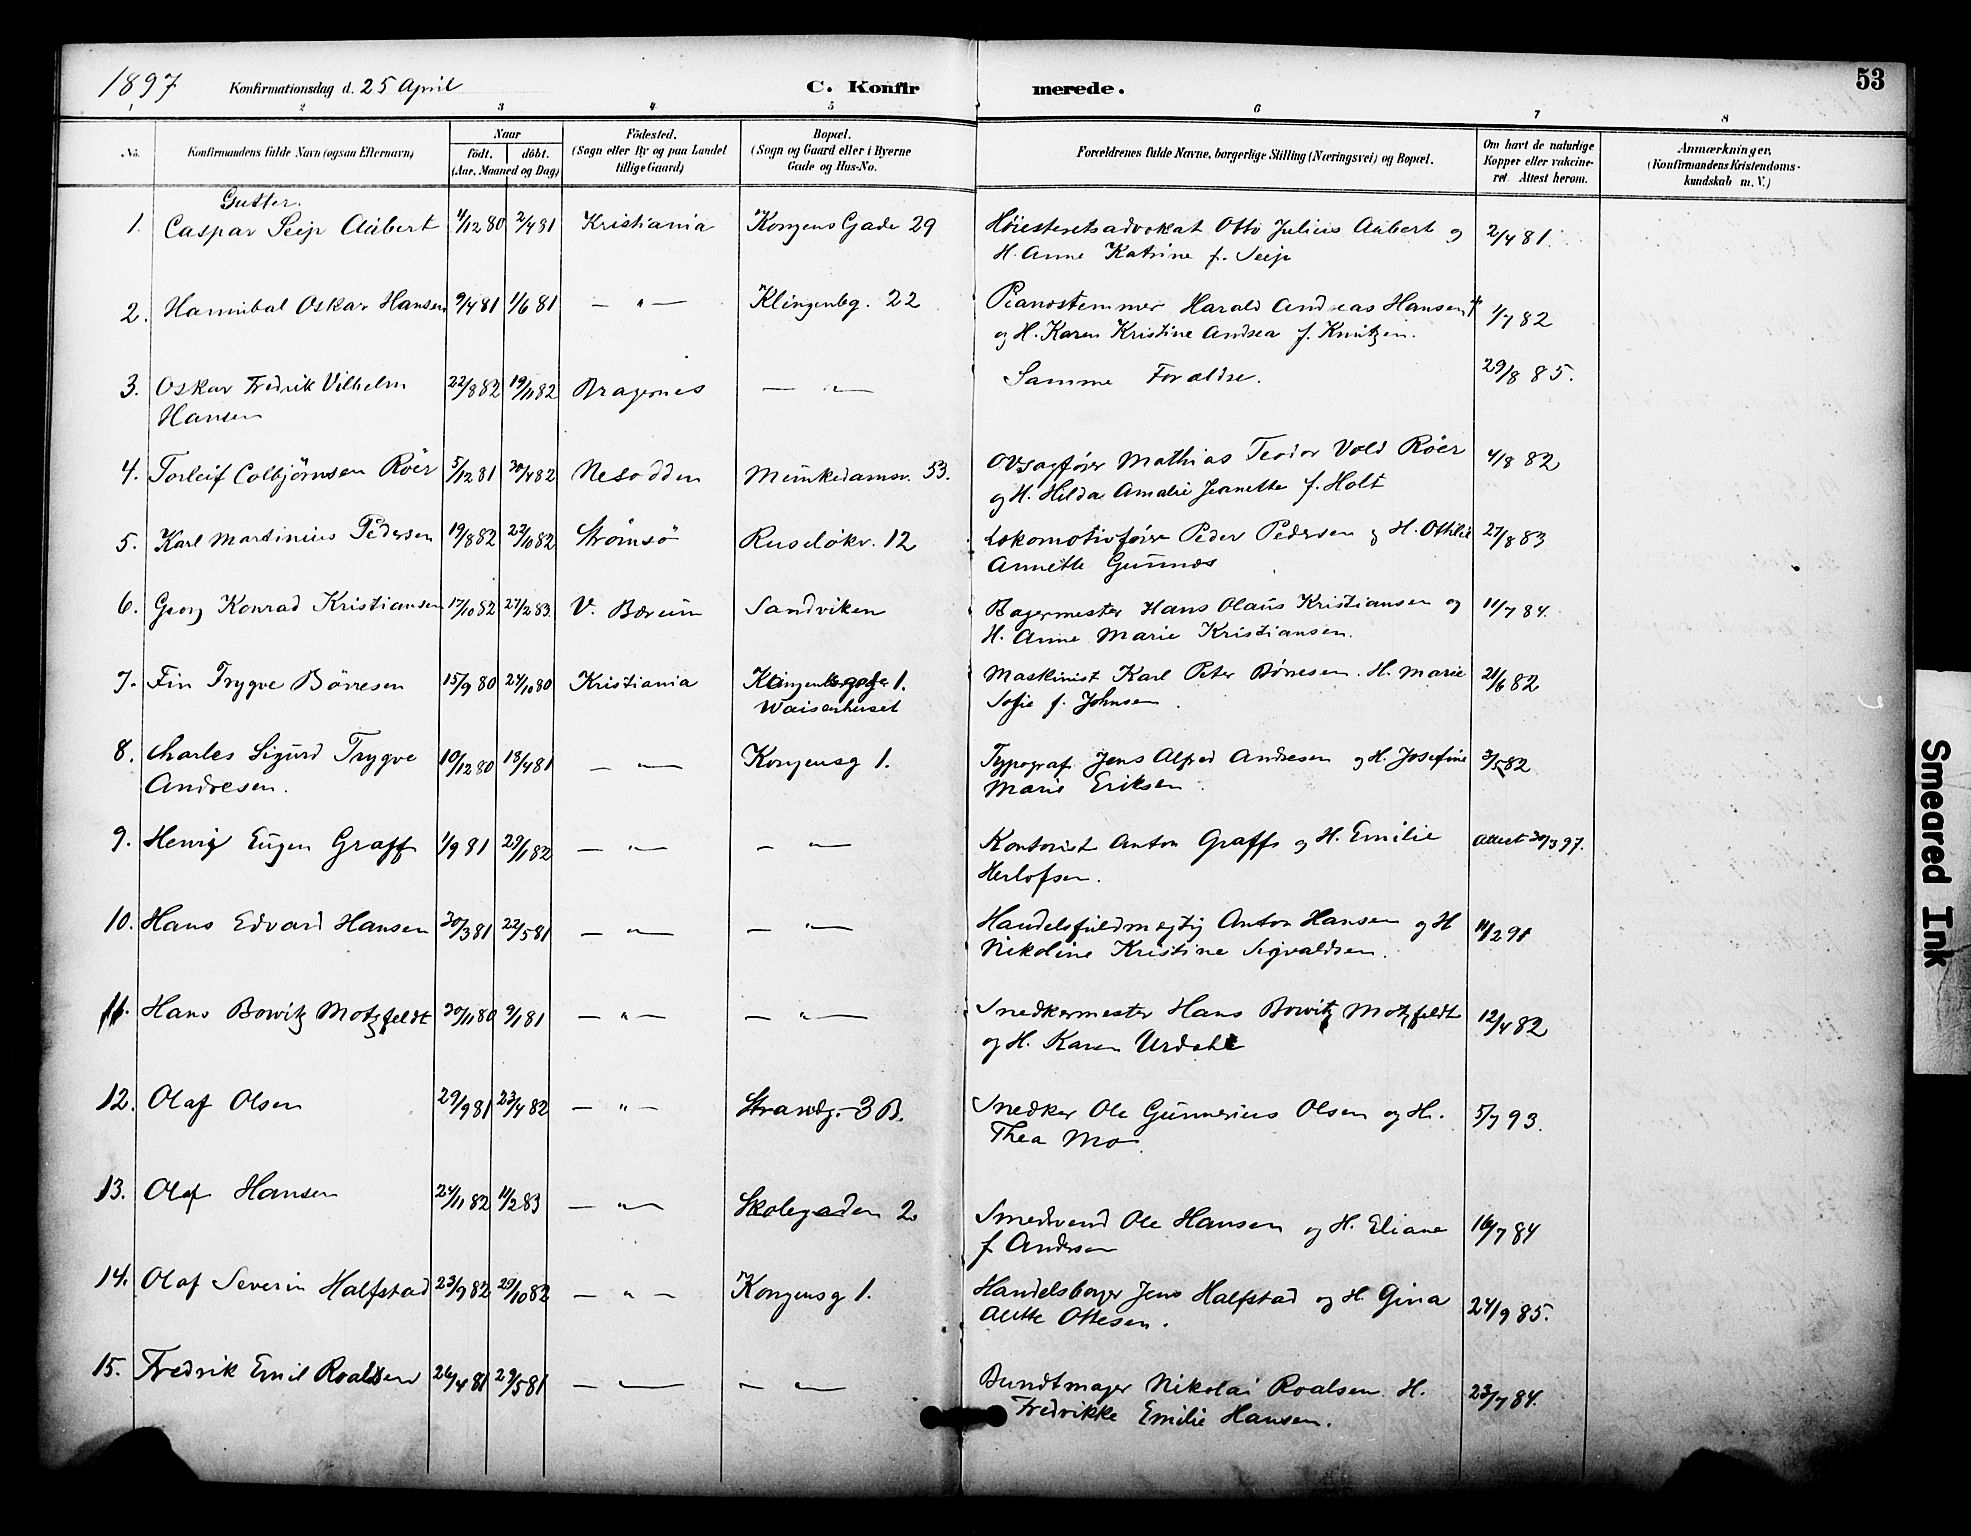 1897 Konfirmationsdag d. 25 April C. Konfirmerede. 53
1 2 3 4 5 6 7 8
No. Konfirmandens fulde Navn (ogsaa Efternavn) Naar födt. döbt. (Aar, Maaned og Dag) Födested. (Sogn eller By og paa Landet tillige Gaard) Bopæl. (Sogn og Gaard eller i Byerne Gade og Hus-No. Forældrenes fulde Navne, borgerlige Stilling (Næringsvei) og Bopæl. Om havt de naturlige Kopper eller vakcineret. Attest herom. Anmærkninger, (Konfirmandens Kristendomskundskab m. V.)
Gutter.
1. Caspar Seip Aubert 1/12 80 2/4 81 Kristiania Kongens Gade 29 Höiesteretsadvokat Otto Julius Aubert og 2/4 81.
H. Anne Katrine f. Seip
2. Hannibal Oskar Hansen 9/4 81 1/6 81 — " — Klingenbg. 22 Pianostemmer Harald Andreas Hansen 1/7 82
og H. Karen Kristine Andrea f. Knutzen.
3. Oskar Fredrik Vilhelm 22/8 82 19/11 82 Bragernes — " — Samme Forældre. 29/8 85.
Hansen
4. Torleif Colbjörnsen Röer 5/12 81 30/4 82 Nesodden Munkedamsv. 53. Ovsagförer Mathias Teodor Vold Röer 4/8 82
og H. Hilda Amalie Jeanette f. Holt
5. Karl Martinius Pedersen 19/8 82 22/10 82 Strömsö Ruselökv. 12 Lokomotivförer Peder Pedersen og H. Othilie 27/8 83
Annette Gunnæs
6. Georg Konrad Kristiansen 17/10 82 27/2 83. V. Bærum Sandviken Bagermester Hans Olaus Kristiansen og 11/7 84.
H. Anne Marie Kristiansen.
7. Fin Trygve Börresen 15/9 80 24/10 80 Kristiania Klingenberggade 1. Maskinist Karl Peter Börresen. H. Marie 21/6 82
Waisenhuset Sofie f. Johnsen.
8. Charles Sigurd Trygve 10/12 80 13/4 81 — " — Kongensg 1. Typograf Jens Alfred Andresen og H. Josefine 3/5 82
Andresen. Marie Eriksen.
9. Henry Eugen Graff 1/9 81 29/1 82 — " — — " — Kontorist Anton Graff og H. Emilie Attest 30/3 97.
Herlofsen.
10. Hans Edvard Hansen 30/3 81 22/5 81 — " — — " — Handelsfuldmegtig Anton Hansen og H 11/2 91
Nikoline Kristine Sigvaldsen.
11. Hans Bowitz Motzfeldt 30/11 80 9/1 81 — " — — " — Snedkermester Hans Bowitz Motzfeldt 12/4 82
og H. Karen Urdahl
12. Olaf Olsen 29/9 81 23/4 82 — " — Strandg. 3 B. Snedker Ole Gunnerius Olsen og H. 5/7 93.
Thea Mo.
13. Olaf Hansen 24/11 82 11/2 83 — " — Skolegaden 2. Smedsvend Ole Hansen og H. Eliane 16/7 84
f Andersen
14. Olaf Severin Halfstad 23/9 82 29/10 82 — " — Kongensg 1. Handelsborger Jens Halfstad og H. Gina 24/9 85.
Alette Ottesen.
15. Fredrik Emil Roaldsen 26/4 81 29/5 81 — " — — " — Bundtmager Nikolai Roalsen H. 23/7 84.
Fredrikke Emilie Hansen.
Smeared Ink